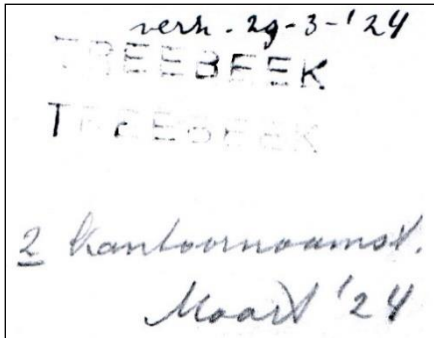 verh. - 29-3-'24
TREEBEEK
TREEBEEK
2 kantoornaamst.
Maart '24